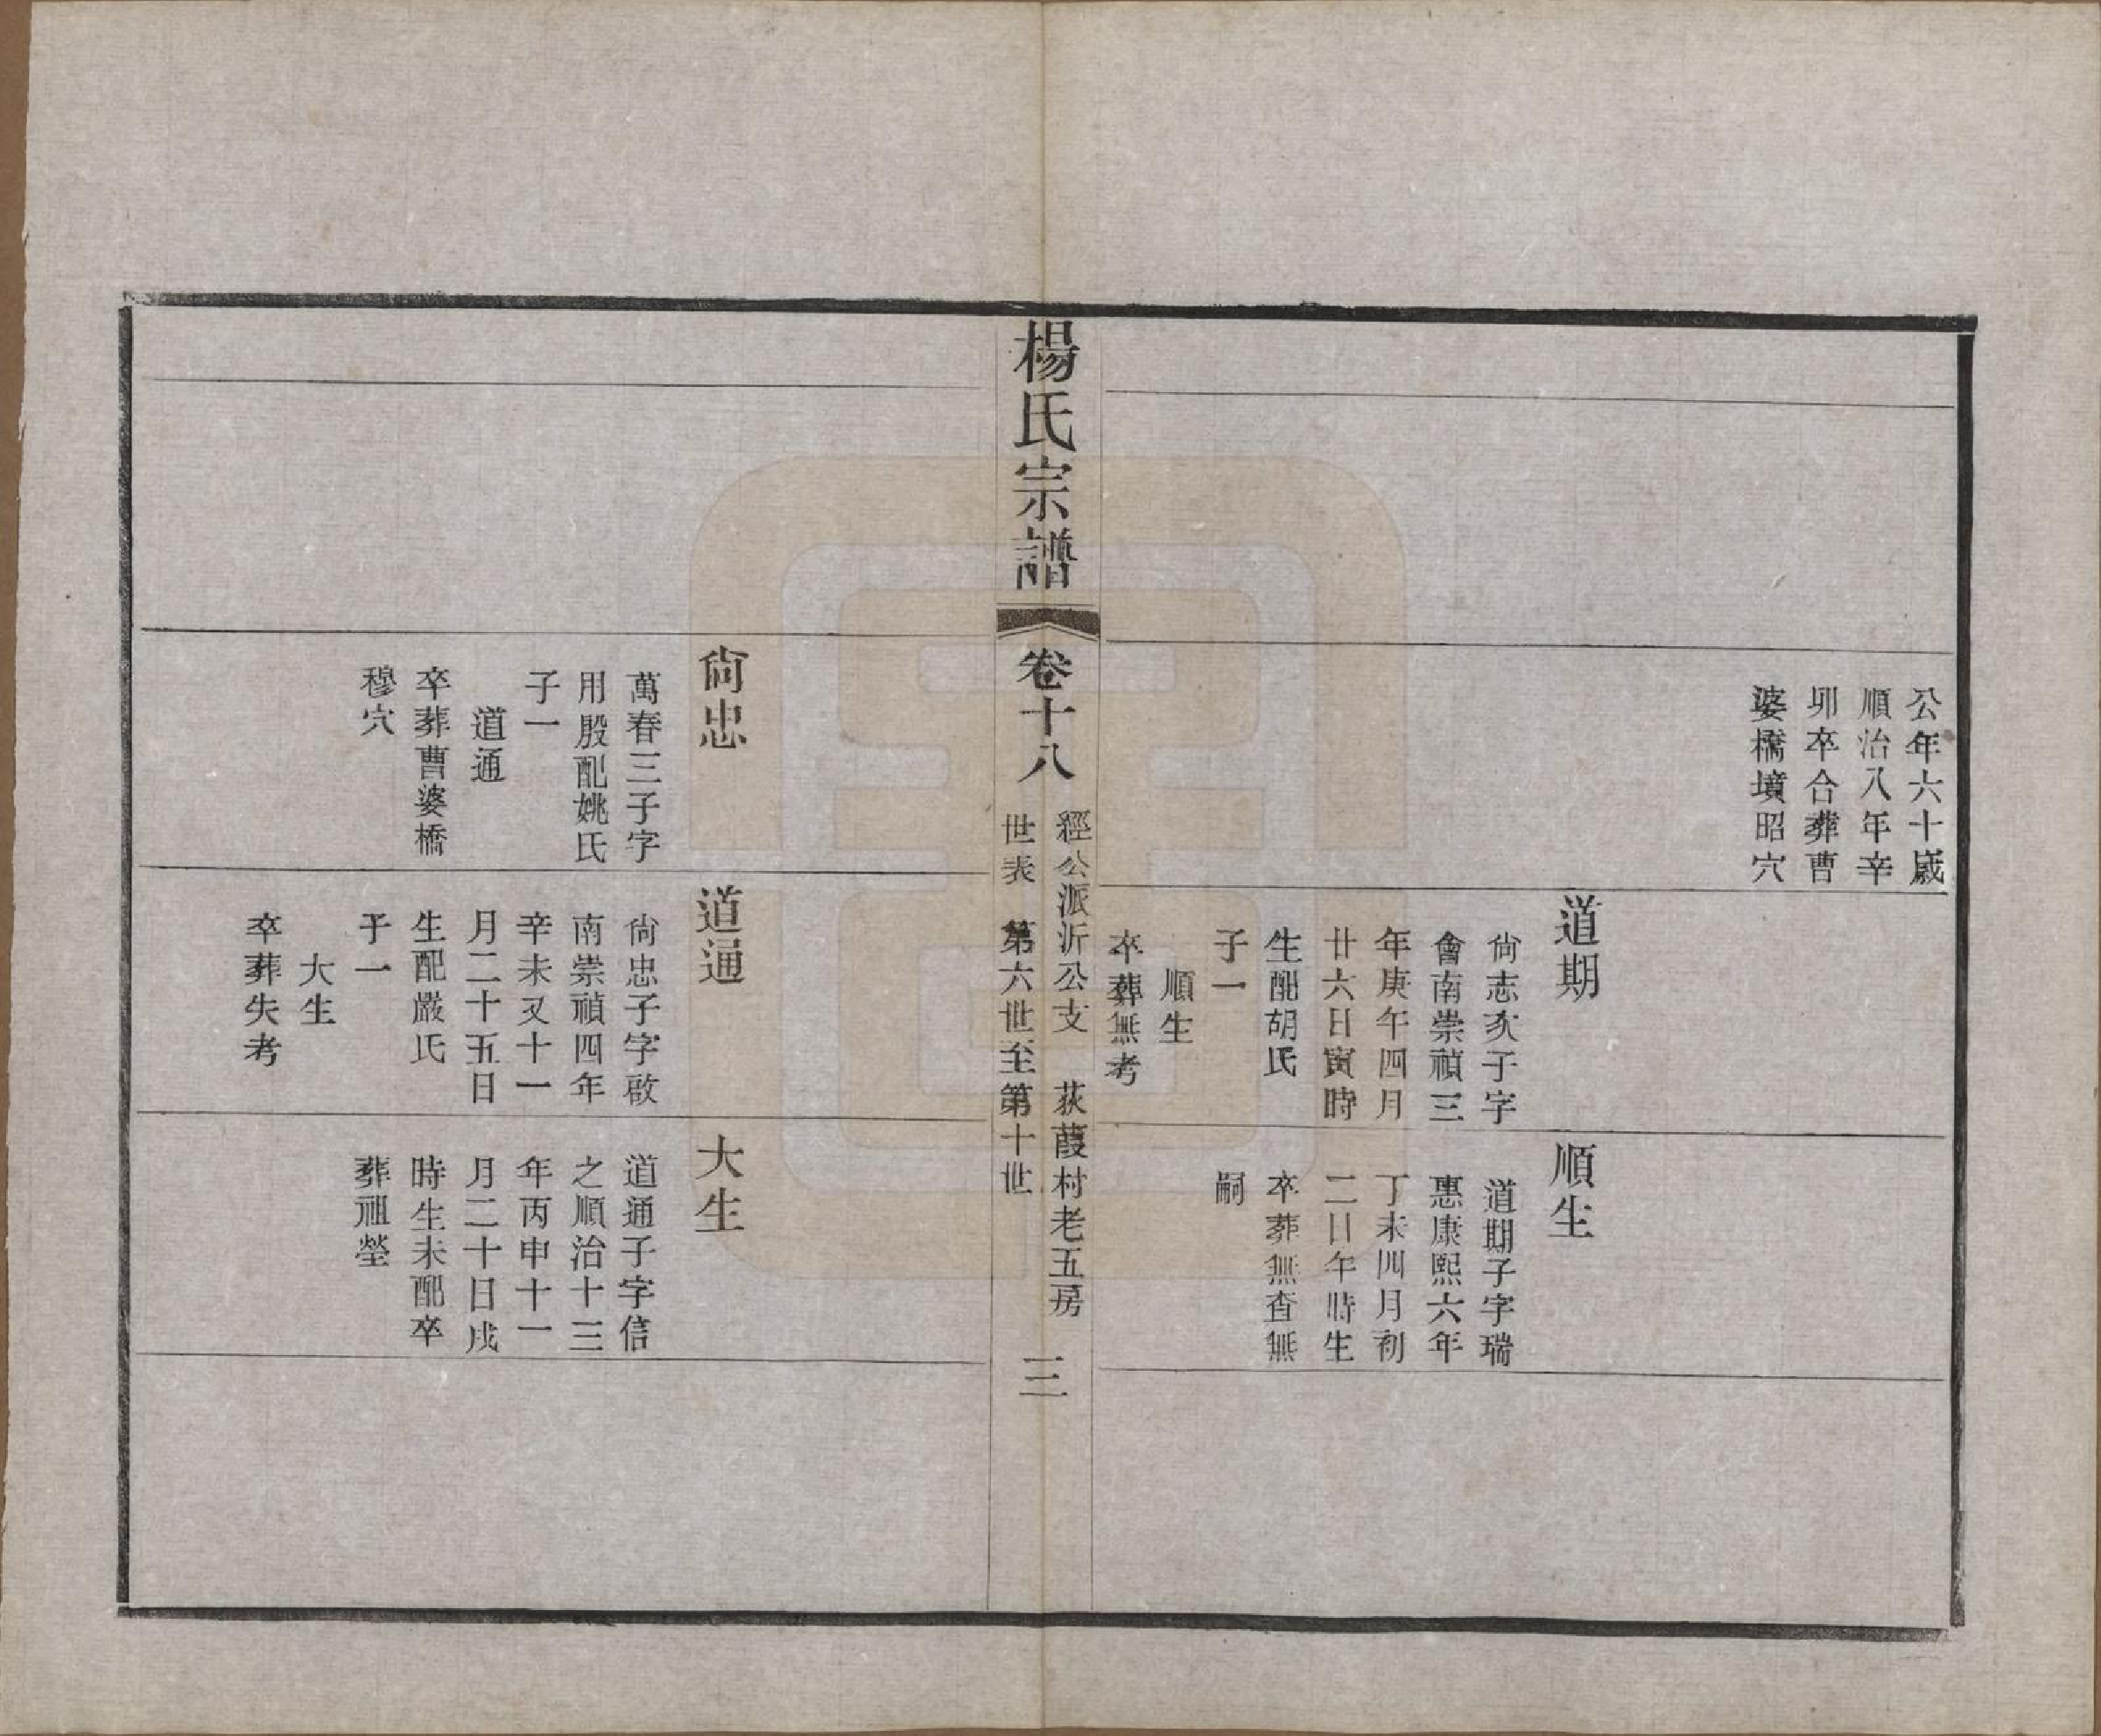 公年六十歲
順治八年辛
卯卒合葬曹
婆橋墳昭穴
道期
尙志次子字
會南崇禎三
年庚午四月
廿六日寅時
生配胡氏
子一
順生
卒葬無考
順生
道期子字瑞
惠康熙六年
丁未四月初
二日午時生
卒葬無查無
嗣
楊氏宗譜
卷十八
經公派沂公支 荻葭村老五房
世表 第六世至第十世
三
尙忠
萬春三子字
用殷配姚氏
子一
道通
卒葬曹婆橋
穆穴
道通
尙忠子字啟
南崇禎四年
辛未又十一
月二十五日
生配嚴氏
子一
大生
卒葬失考
大生
道通子字信
之順治十三
年丙申十一
月二十日戌
時生未配卒
葬祖塋